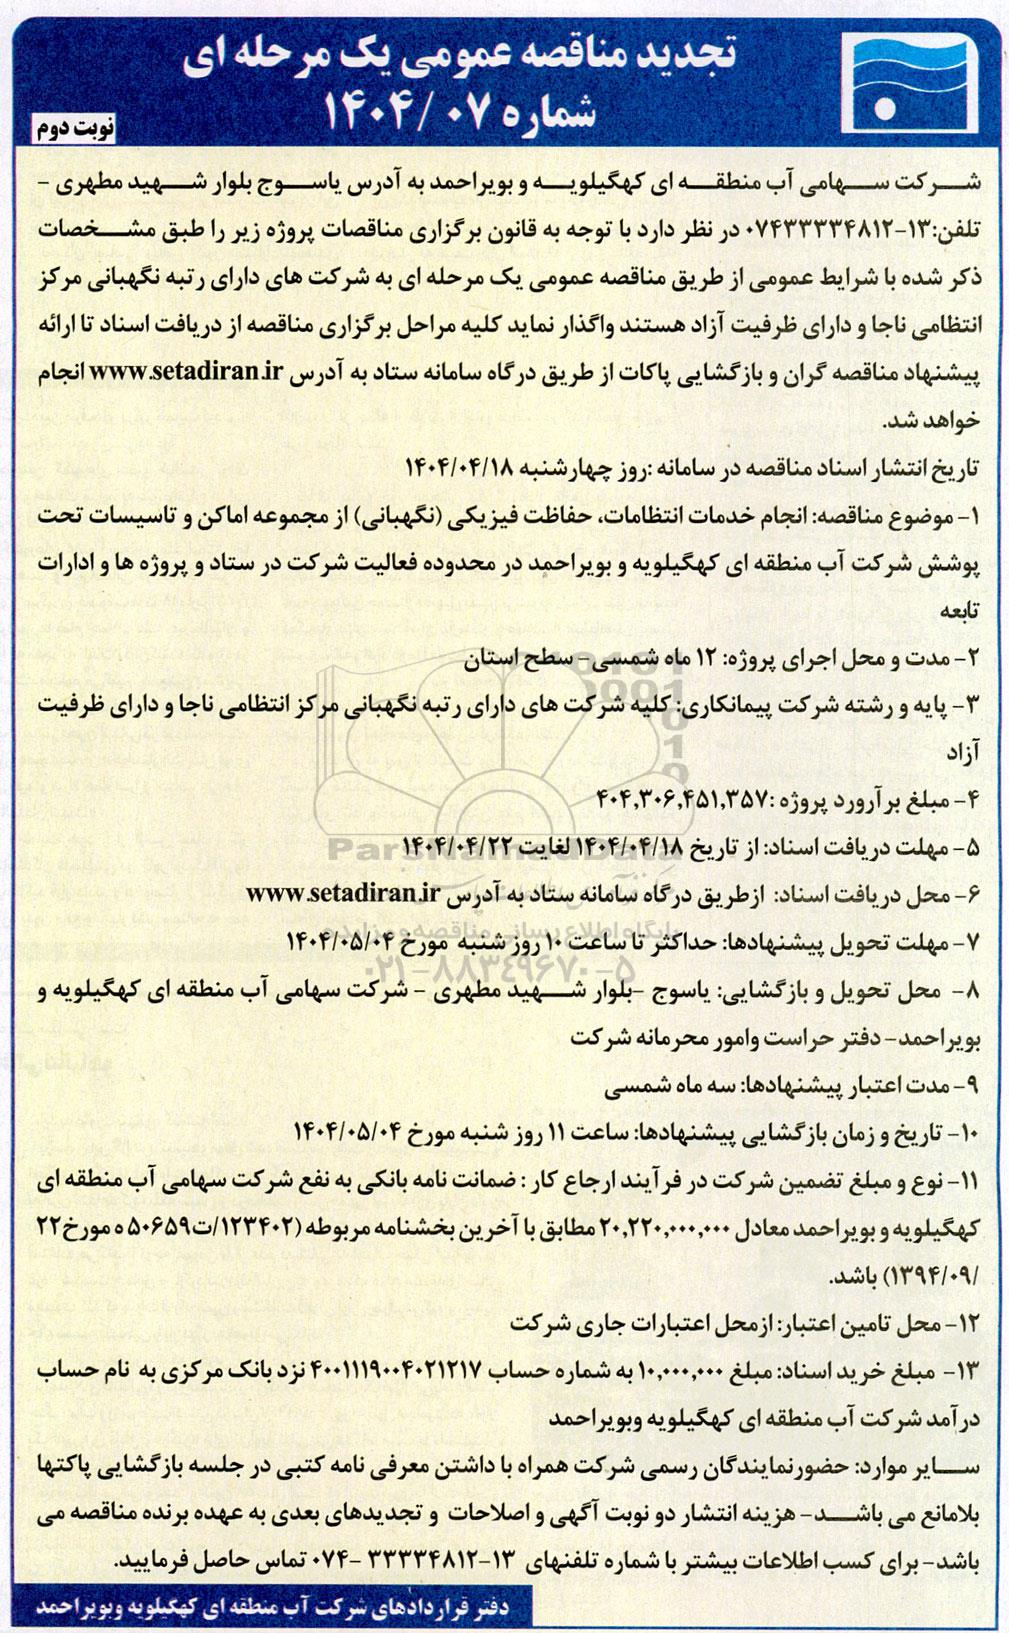 تجدید مناقصه عمومی یک مرحله ای
شماره ۰۷ /۱۴۰۴
نوبت دوم
شرکت سهامی آب منطقه ای کهگیلویه و بویراحمد به آدرس یاسوج بلوار شهید مطهری -
تلفن:۱۳-۰۷۴۳۳۳۳۴۸۱۲ در نظر دارد با توجه به قانون برگزاری مناقصات پروژه زیر را طبق مشخصات
ذکر شده با شرایط عمومی از طریق مناقصه عمومی یک مرحله ای به شرکت های دارای رتبه نگهبانی مرکز
انتظامی ناجا و دارای ظرفیت آزاد هستند واگذار نماید کلیه مراحل برگزاری مناقصه از دریافت اسناد تا ارائه
پیشنهاد مناقصه گران و بازگشایی پاکات از طریق درگاه سامانه ستاد به آدرس www.setadiran.ir انجام
خواهد شد.
تاریخ انتشار اسناد مناقصه در سامانه :روز چهارشنبه ۱۴۰۴/۰۴/۱۸
۱- موضوع مناقصه: انجام خدمات انتظامات، حفاظت فیزیکی (نگهبانی) از مجموعه اماکن و تاسیسات تحت
پوشش شرکت آب منطقه ای کهگیلویه و بویراحمد در محدوده فعالیت شرکت در ستاد و پروژه ها و ادارات
تابعه
۲- مدت و محل اجرای پروژه: ۱۲ ماه شمسی- سطح استان
۳- پایه و رشته شرکت پیمانکاری: کلیه شرکت های دارای رتبه نگهبانی مرکز انتظامی ناجا و دارای ظرفیت
آزاد
۴- مبلغ برآورد پروژه :۴۰۴,۳۰۶,۴۵۱,۳۵۷
۵- مهلت دریافت اسناد: از تاریخ ۱۴۰۴/۰۴/۱۸ لغایت ۱۴۰۴/۰۴/۲۲
۶- محل دریافت اسناد: ازطریق درگاه سامانه ستاد به آدرس www.setadiran.ir
۷- مهلت تحویل پیشنهادها: حداکثر تا ساعت ۱۰ روز شنبه مورخ ۱۴۰۴/۰۵/۰۴
۸- محل تحویل و بازگشایی: یاسوج -بلوار شهید مطهری - شرکت سهامی آب منطقه ای کهگیلویه و
بویراحمد- دفتر حراست وامور محرمانه شرکت
۹- مدت اعتبار پیشنهادها: سه ماه شمسی
۱۰- تاریخ و زمان بازگشایی پیشنهادها: ساعت ۱۱ روز شنبه مورخ ۱۴۰۴/۰۵/۰۴
۱۱- نوع و مبلغ تضمین شرکت در فرآیند ارجاع کار : ضمانت نامه بانکی به نفع شرکت سهامی آب منطقه ای
کهگیلویه و بویراحمد معادل ۲۰,۲۲۰,۰۰۰,۰۰۰ مطابق با آخرین بخشنامه مربوطه (۱۲۳۴۰۲/ت۵۰۶۵۹ ه مورخ۲۲
/۱۳۹۴/۰۹) باشد.
۱۲- محل تامین اعتبار: ازمحل اعتبارات جاری شرکت
۱۳- مبلغ خرید اسناد: مبلغ ۱۰,۰۰۰,۰۰۰ به شماره حساب ۴۰۰۱۱۱۹۰۰۴۰۲۱۲۱۷ نزد بانک مرکزی به نام حساب
درآمد شرکت آب منطقه ای کهگیلویه وبویراحمد
سایر موارد: حضورنمایندگان رسمی شرکت همراه با داشتن معرفی نامه کتبی در جلسه بازگشایی پاکتها
بلامانع می باشد- هزینه انتشار دو نوبت آگهی و اصلاحات و تجدیدهای بعدی به عهده برنده مناقصه می
باشد- برای کسب اطلاعات بیشتر با شماره تلفنهای ۱۳-۳۳۳۳۴۸۱۲ -۰۷۴ تماس حاصل فرمایید.
دفتر قراردادهای شرکت آب منطقه ای کهگیلویه وبویراحمد
ParsNamadData
پایگاه اطلاع رسانی مناقصه و مزایده
۰۲۱-۸۸۳۴۹۶۷۰-۵